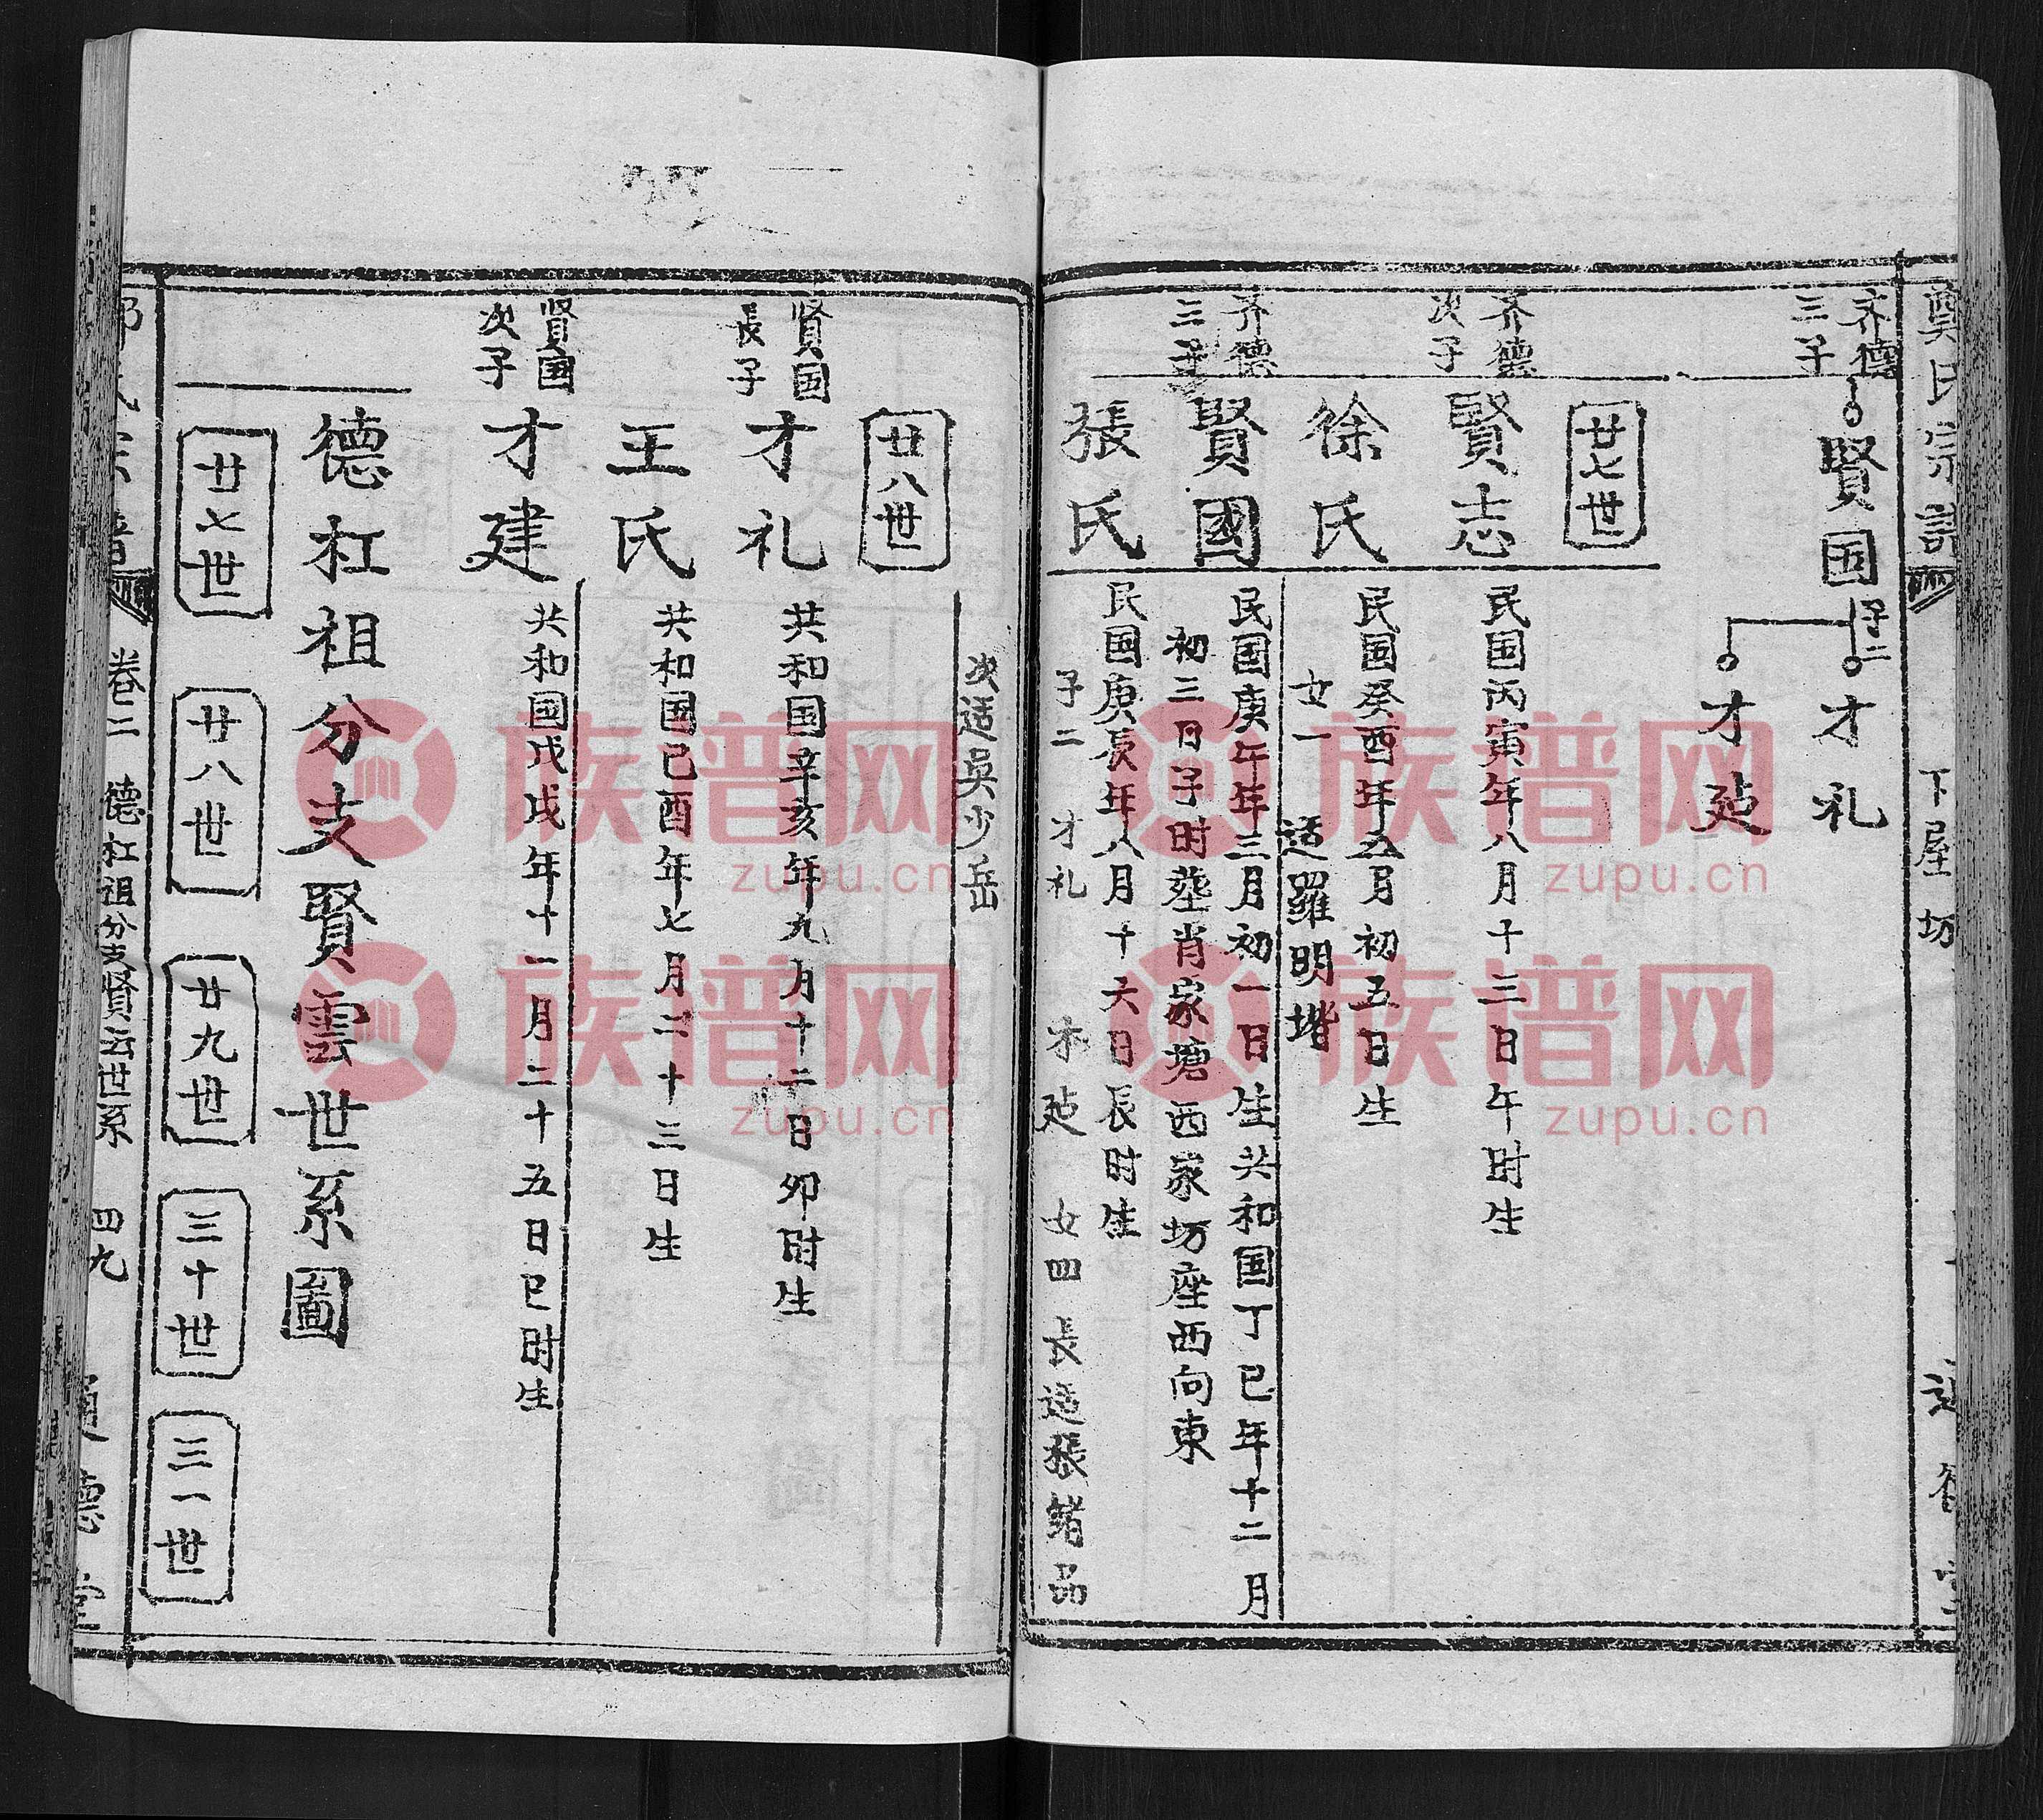 氏宗譜
下屋坊
齐德
三子
賢国
子二
才礼
才廷
廿七世
齐德
次子
賢志
民国丙寅年八月十三日午时生
徐氏
民国癸酉年五月初五日生
女一 适羅明堦
齐德
三子
賢國
民國庚午年三月初一日生共和国丁巳年十二月
初三日子时塟肖家塘西家坊座西向東
張氏
民國庚辰年八月十六日辰时生
子二 才礼 才廷 女四 長适張緒品
次适吳少岳
廿八世
賢国
長子
才礼
共和国辛亥年九月十二日卯时生
王氏
共和国己酉年七月二十三日生
賢国
次子
才建
共和国戊戌年十一月二十五日巳时生
德杠祖分支賢雲世系圖
廿七世
廿八世
廿九世
三十世
三一世
卷二 德杠祖分支賢云世系 四九
德堂
族谱网
zupu.cn
族谱网
zupu.cn
族谱网
zupu.cn
族谱网
zupu.cn